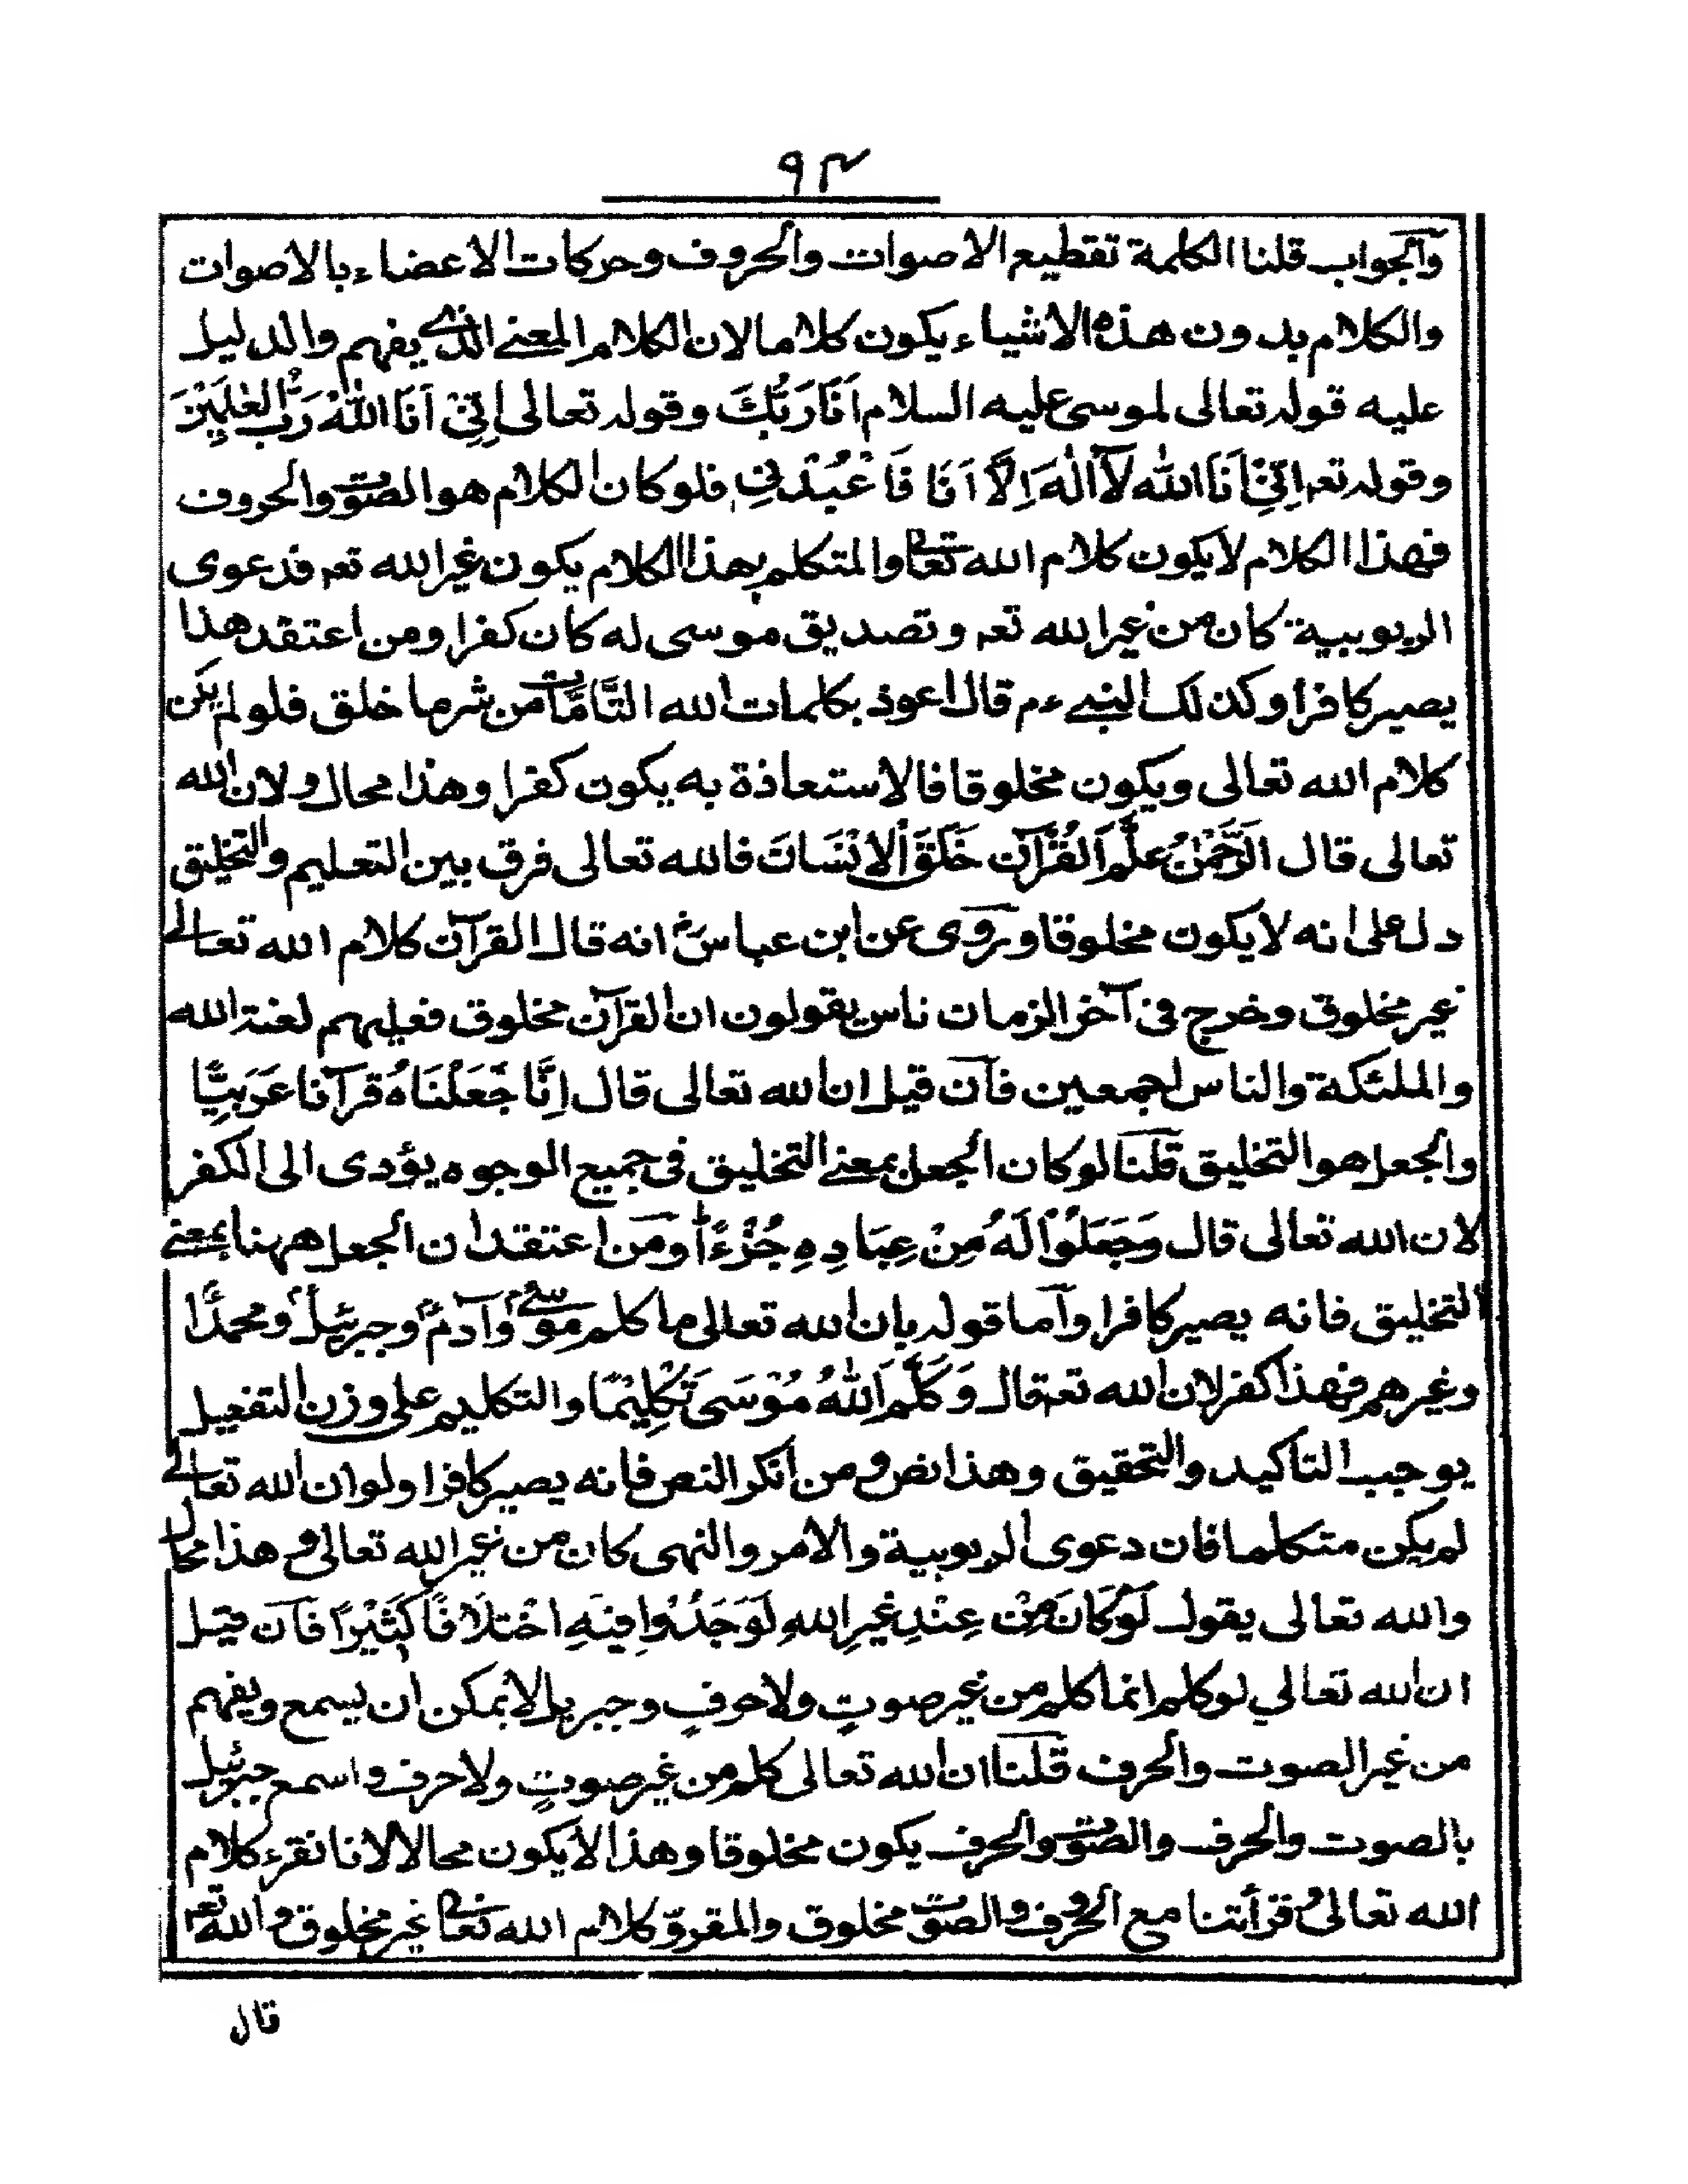 ٩٣
والجواب قلنا الكلمة تقطيع الاصوات والحروف وحركات الاعضاء بالاصوات
والكلام بدون هذه الاشياء يكون كلاما لان الكلام المعنى الذى يفهم والدليل
عليه قوله تعالى لموسى عليه السلام اَنَا رَبُّكَ وقوله تعالى اِنِّىْ اَنَا اللّٰهُ رَبُّ العٰلَمِيْنَ
وقوله تعـ اِنَّنِىْ اَنَا الله لَآ اِلٰهَ اِلَّا اَنَا فَاعْبُدْنِى فلو كان الكلام هو الصوت والحروف
فهذا الكلام لا يكون كلام الله تعالى والمتكلم بهذا الكلام يكون غير الله تعـ فدعوى
الربوبية كان من غير الله تعـ وتصديق موسى له كان كفرا ومن اعتقد هذا
يصير كافرا وكذلك النبى ءم قال اعوذ بكلمات الله التَّامَّات من شر ما خلق فلو لم يكن
كلام الله تعالى ويكون مخلوقا فالاستعاذة به يكون كفرا وهذا محال ولان الله
تعالى قال اَلرَّحْمٰنُ عَلَّمَ القُرْآنَ خَلَقَ الاِنْسَانَ فالله تعالى فرق بين التعليم والتخليق
دل على انه لا يكون مخلوقا وروى عن ابن عباس رض انه قال القرآن كلام الله تعالى
غير مخلوق وخرج فى آخر الزمان ناس يقولون ان القرآن مخلوق فعليهم لعنة الله
والملئكة والناس اجمعين فان قيل ان الله تعالى قال اِنَّا جَعَلْنَاهُ قرآنا عَرَبِيًّا
والجعل هو التخليق قلنا لو كان الجعل بمعنى التخليق فى جميع الوجوه يؤدى الى الكفر
لان الله تعالى قال وَجَعَلُوْا لَهُ مِنْ عِبَادِهِ جُزْءًا ومن اعتقد ان الجعل ههنا بمعنى
التخليق فانه يصير كافرا واما قوله بان الله تعالى ما كلم موسى وآدم وجبرئيل ومحمدًا
وغيرهم فهذا كفر لان الله تعـ قال وَكَلَّمَ اللّٰهُ مُوْسَى تَكْلِيْمًا والتكليم على وزن التفعيل
يوجب التاكيد والتحقيق وهذا نص ومن انكر النص فانه يصير كافرا ولو ان الله تعالى
لم يكن متكلما فان دعوى الربوبية والامر والنهى كان من غير الله تعالى وهذا محال
والله تعالى يقول لَوْ كَانَ مِنْ عِنْدِ غَيْرِ اللهِ لَوَجَدُوْا فِيْهِ اخْتِلَافًا كَثِيْرًا فان قيل
ان الله تعالى لو كلم انما كلم من غير صوتٍ ولا حرفٍ وجبريل لا يمكن ان يسمع ويفهم
من غير الصوت والحرف قلنا ان الله تعالى كلم من غير صوتٍ ولا حرف واسمع جبرئيل
بالصوت والحرف والصوت والحرف يكون مخلوقا وهذا لا يكون محالا لانا نقرء كلام
الله تعالى وقرأتنا مع الحروف والصوت مخلوق والمقروّ كلام الله تعالى غير مخلوق والله تعـ
قال